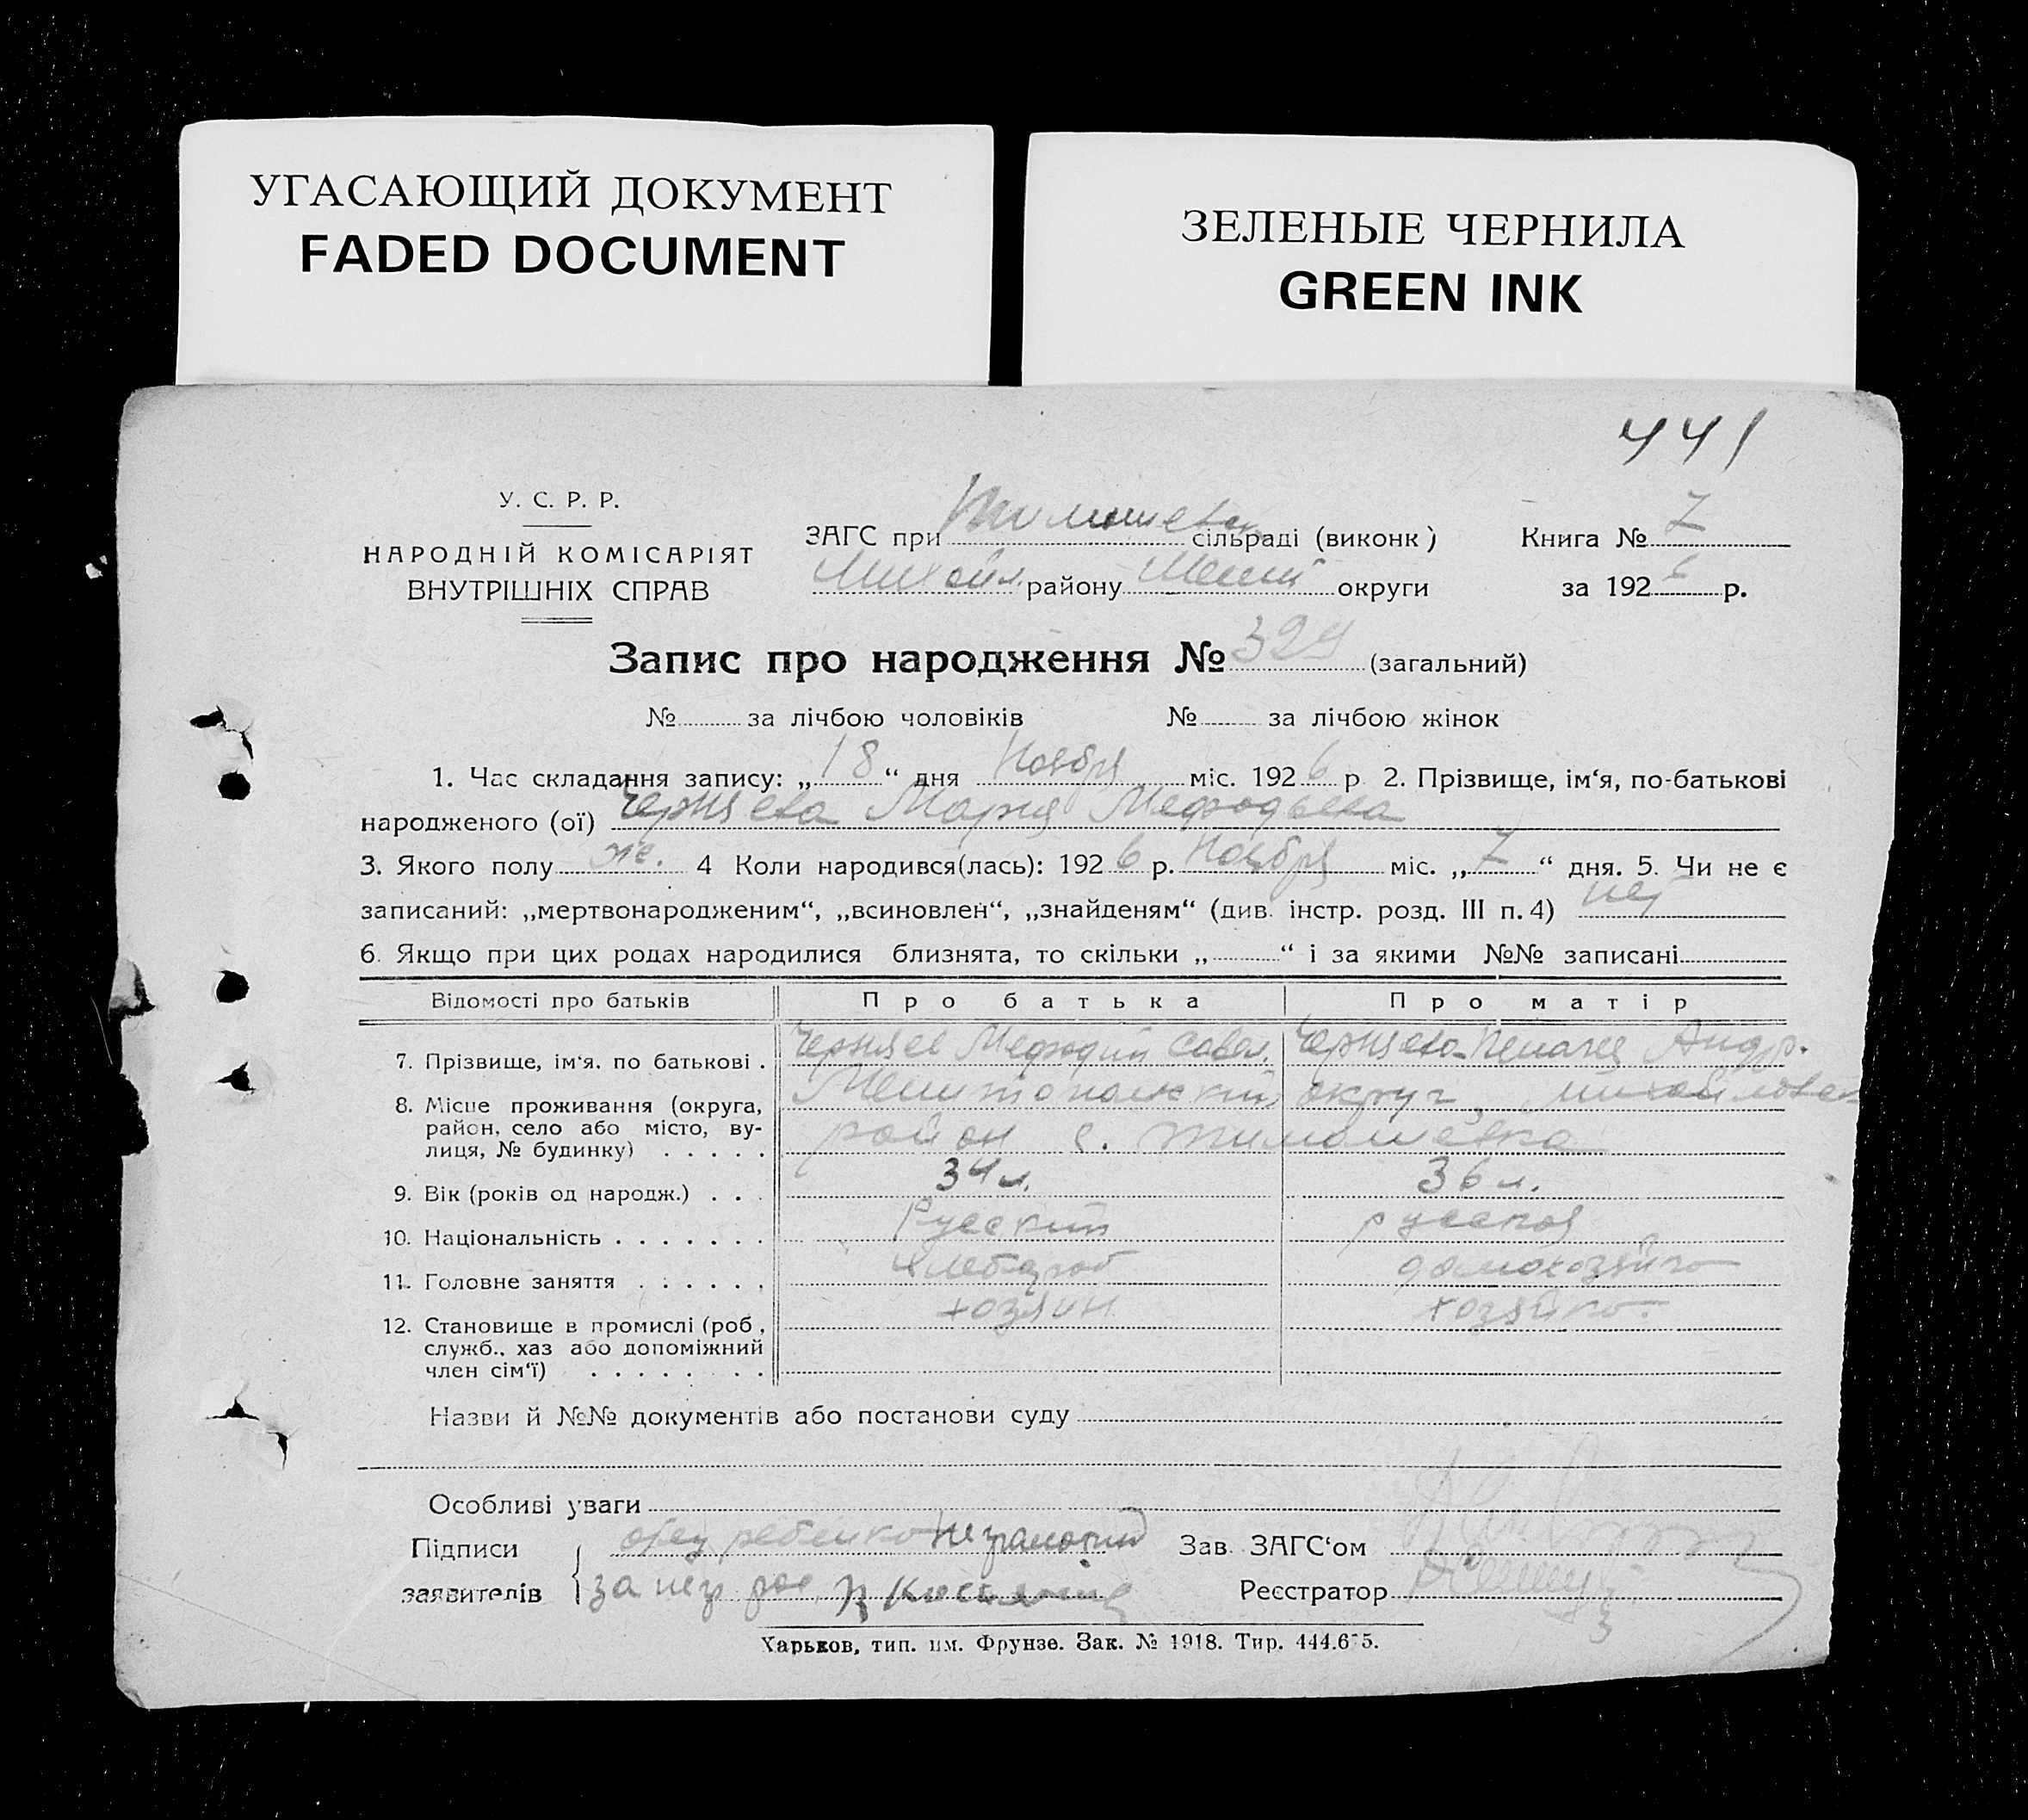 УГАСАЮЩИЙ ДОКУМЕНТ
FADED DOCUMENT
ЗЕЛЕНЫЕ ЧЕРНИЛА
GREEN INK
441
У. С. Р. Р.
НАРОДНІЙ КОМІСАРІЯТ
ВНУТРІШНІХ СПРАВ
ЗАГС при Тимошевск сільраді (виконк) Книга № 7
Михайл. району Мелит округи за 1926 р.
Запис про народження № 324 (загальний)
№ за лічбою чоловіків № за лічбою жінок
1. Час складання запису: „18“ дня Ноября міс. 1926 р 2. Прізвище, ім‘я, по-батькові
народженого (ої) Черняева Мария Мефодьева
3. Якого полу же. 4 Коли народився(лась): 1926 р. Ноября міс. „7“ дня. 5. Чи не є
записаний: „мертвонародженим“, „всиновлен“, „знайденям“ (див. інстр. розд. III п. 4) нет
6. Якщо при цих родах народилися близнята, то скільки „ “ і за якими №№ записані
Відомості про батьків Про батька Про матір
7. Прізвище, ім‘я. по батькові . Черняев Мефодий Савел. Черняева Пелагея Андр.
8. Місце проживання (округа, район, село або місто, вулиця, № будинку) Мелитопольский округ, Михайловск
район с. Тимошевка
9. Вік (років од народж.) 34 л. 36 л.
10. Національність Русский русская
11. Головне заняття хлебороб домохозяйка
12. Становище в промислі (роб., служб., хаз або допоміжний член сім‘ї) хозяин хозяйка
Назви й №№ документів або постанови суду
Особливі уваги
Підписи отец ребенка неграмотный Зав. ЗАГС‘ом
заявителів за негр рос. Реєстратор
Харьков, тип. им. Фрунзе. Зак. № 1918. Тир. 444.675.